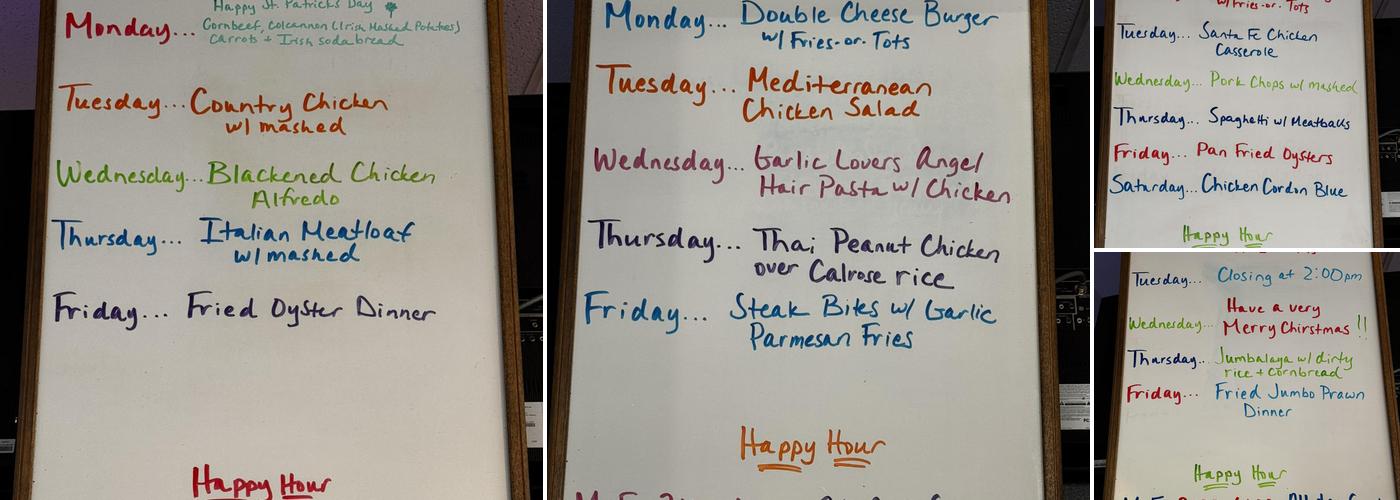 Happy St. Patricks Day
Monday... Cornbeef, colcannon (Irish Mashed Potatoes)
Carrots + Irish soda bread
Tuesday... Country Chicken
w/ mashed
Wednesday... Blackened Chicken
Alfredo
Thursday... Italian Meatloaf
w/ mashed
Friday... Fried Oyster Dinner
Happy Hour
Monday... Double Cheese Burger
w/ Fries-or-Tots
Tuesday... Mediterranean
Chicken Salad
Wednesday... Garlic Lovers Angel
Hair Pasta w/ Chicken
Thursday... Thai Peanut Chicken
over Calrose rice
Friday... Steak Bites w/ Garlic
Parmesan Fries
Happy Hour
w/Fries-or-Tots
Tuesday... Santa Fe Chicken
Casserole
Wednesday... Pork Chops w/ mashed
Thursday... Spaghetti w/ Meatballs
Friday... Pan Fried Oysters
Saturday... Chicken Cordon Blue
Happy Hour
Tuesday... Closing at 2:00pm
Have a very
Wednesday... Merry Chirstmas !!
Thursday... Jumbalaya w/ dirty
rice + cornbread
Friday... Fried Jumbo Prawn
Dinner
Happy Hour